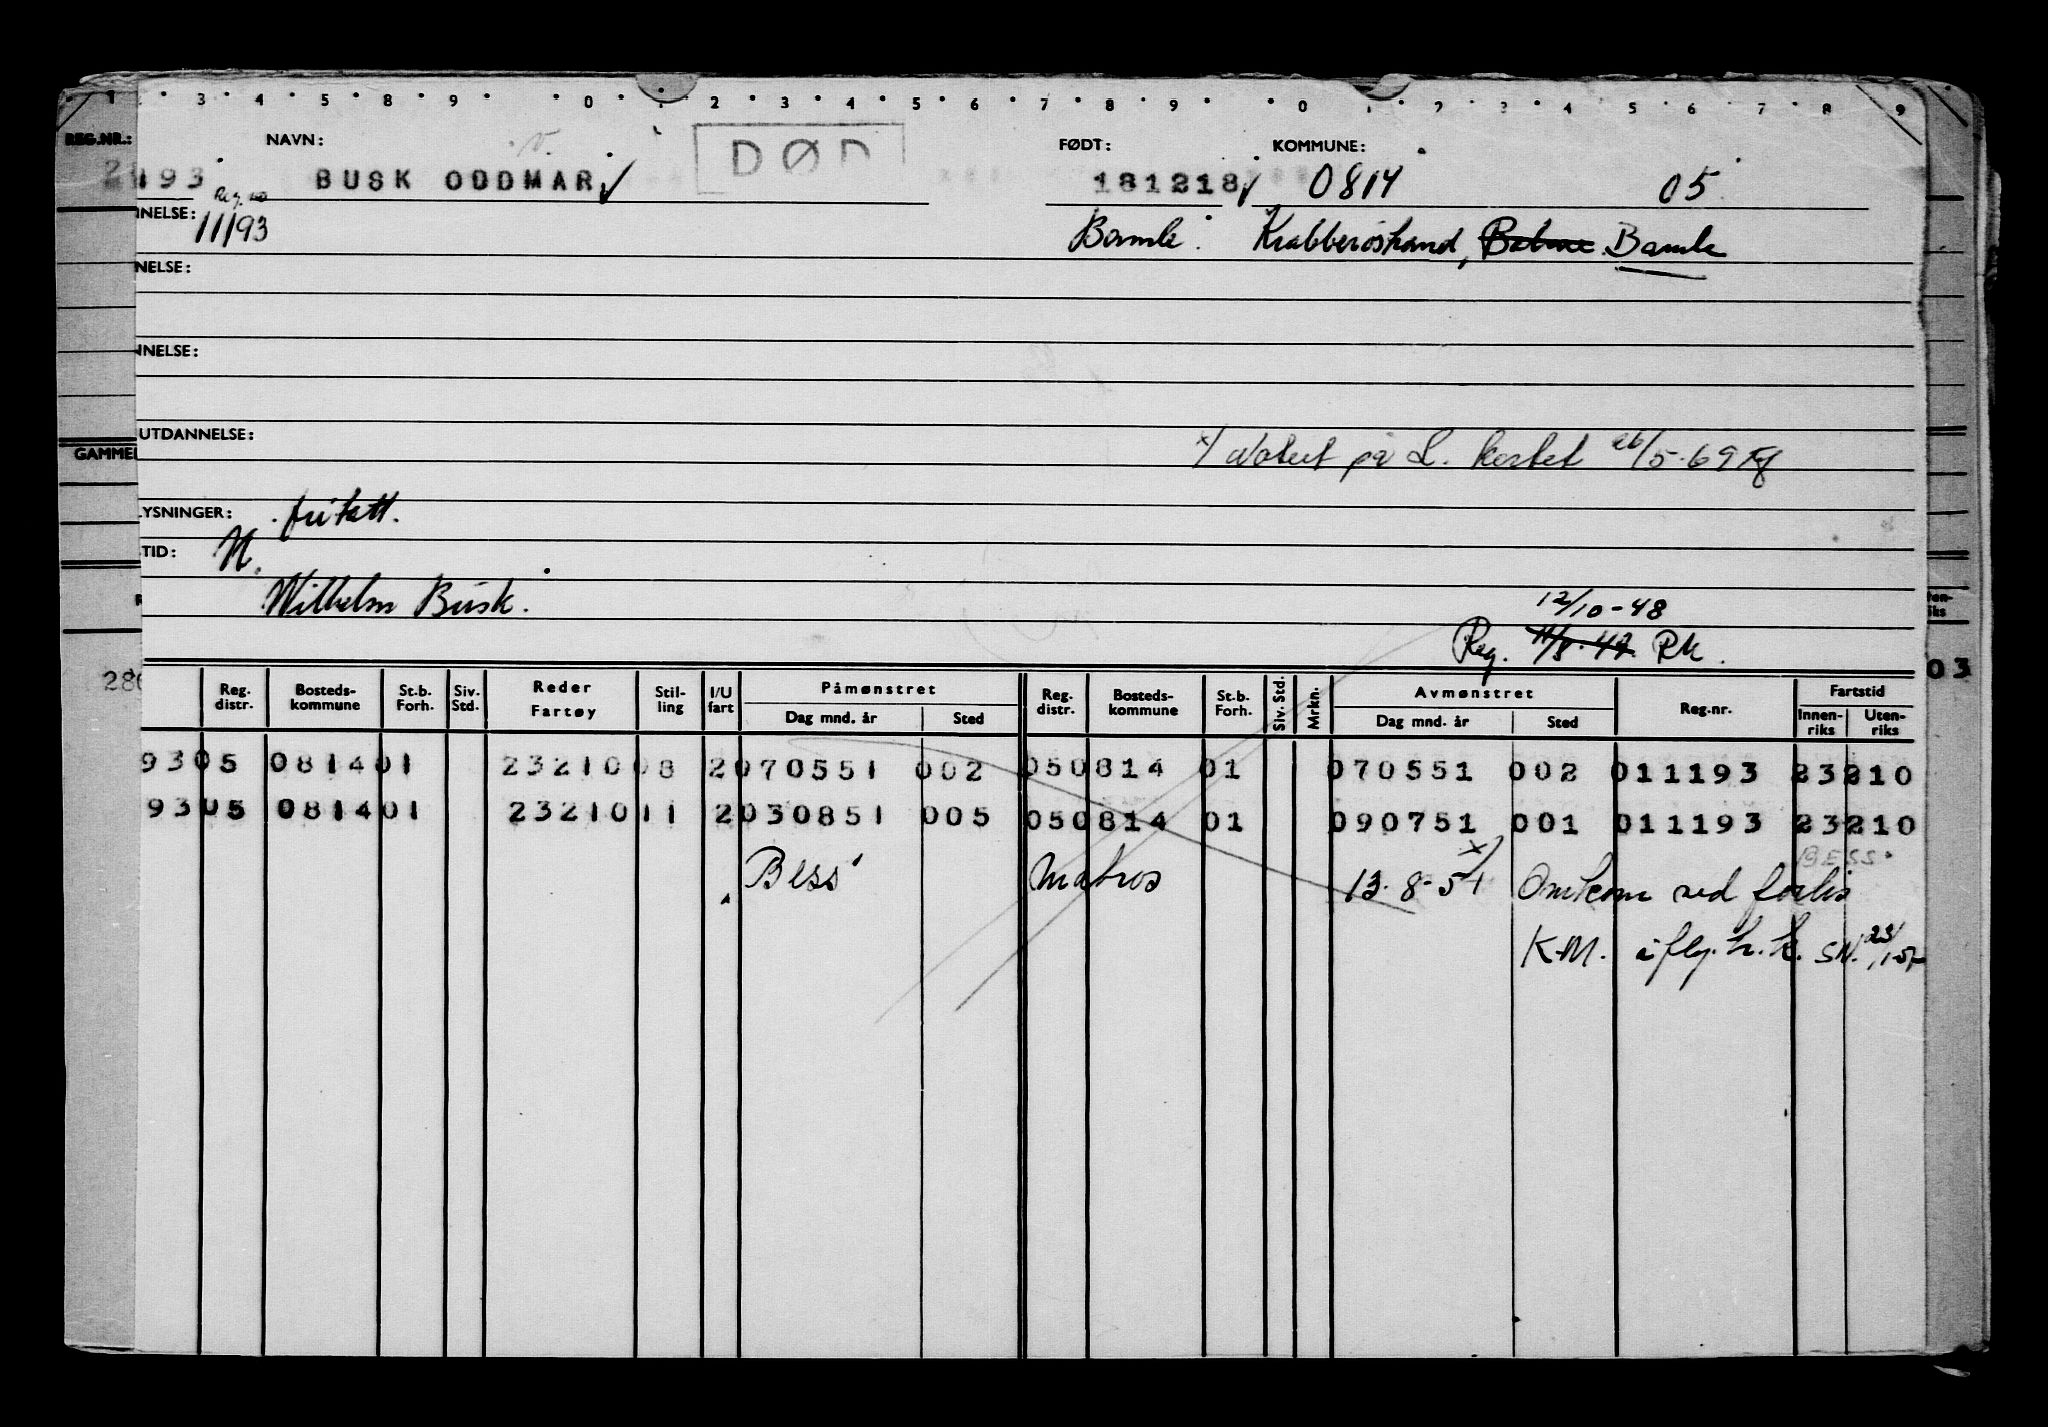 1 2 3 4 5 8 9 0 1 2 3 4 5 6 7 8 9 0 1 2 3 4 5 6 7 8 9
REG.NR.: NAVN: FØDT: KOMMUNE:
193 BUSK ODDMAR DØD 181218 0814 05
Reg. no
NNELSE: 11193 Bamle. Krabberøstrand, Bamle
NELSE:
NNELSE:
UTDANNELSE:
GAMMEL
x/ Notert på L. kortet 26/5-69
LYSNINGER: fritatt.
TID: N.
Wilhelm Busk.
12/10-48
Reg. RK.
280 03
Reg. distr. Bosteds-kommune St.b. Forh. Siv. Std. Reder Fartøy Stil-ling I/U fart Påmønstret Dag mnd. år Sted Reg. distr. Bosteds-kommune St.b. Forh. Siv. Std. Mrkn. Avmønstret Dag mnd. år Sted Reg.nr. Fartstid Innen-riks Uten-riks
9305 081401 2321008 2070551 002 050814 01 070551 002 011193 23210
9305 081401 2321011 2030851 005 050814 01 090751 001 011193 23210
BESS
Bess Matros x/ 13-8-51 Omkom ved forlis
K.M. iflg. h.k. SN. 23/1-57